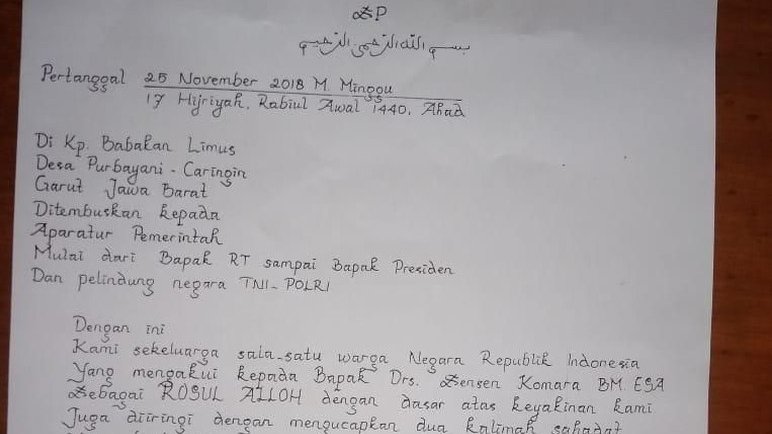 ZP
بسم الله الرحمن الرحيم
Pertanggal 25 November 2018 M. Minggu
17 Hijriyah, Rabiul Awal 1440, Ahad
Di Kp. Babakan Limus
Desa Purbayani - Caringin
Garut Jawa Barat
Ditembuskan kepada
Aparatur Pemerintah
Mulai dari Bapak RT sampai Bapak Presiden
Dan pelindung negara TNI-POLRI
Dengan ini
Kami sekeluarga sala-satu warga Negara Republik Indonesia
Yang mengakui kepada Bapak Drs. Zensen Komara BM. ESA
Zebagai ROSUL ALLOH dengan dasar atas keyakinan kami
Juga diiringi dengan mengucapkan dua kalimah sahadat